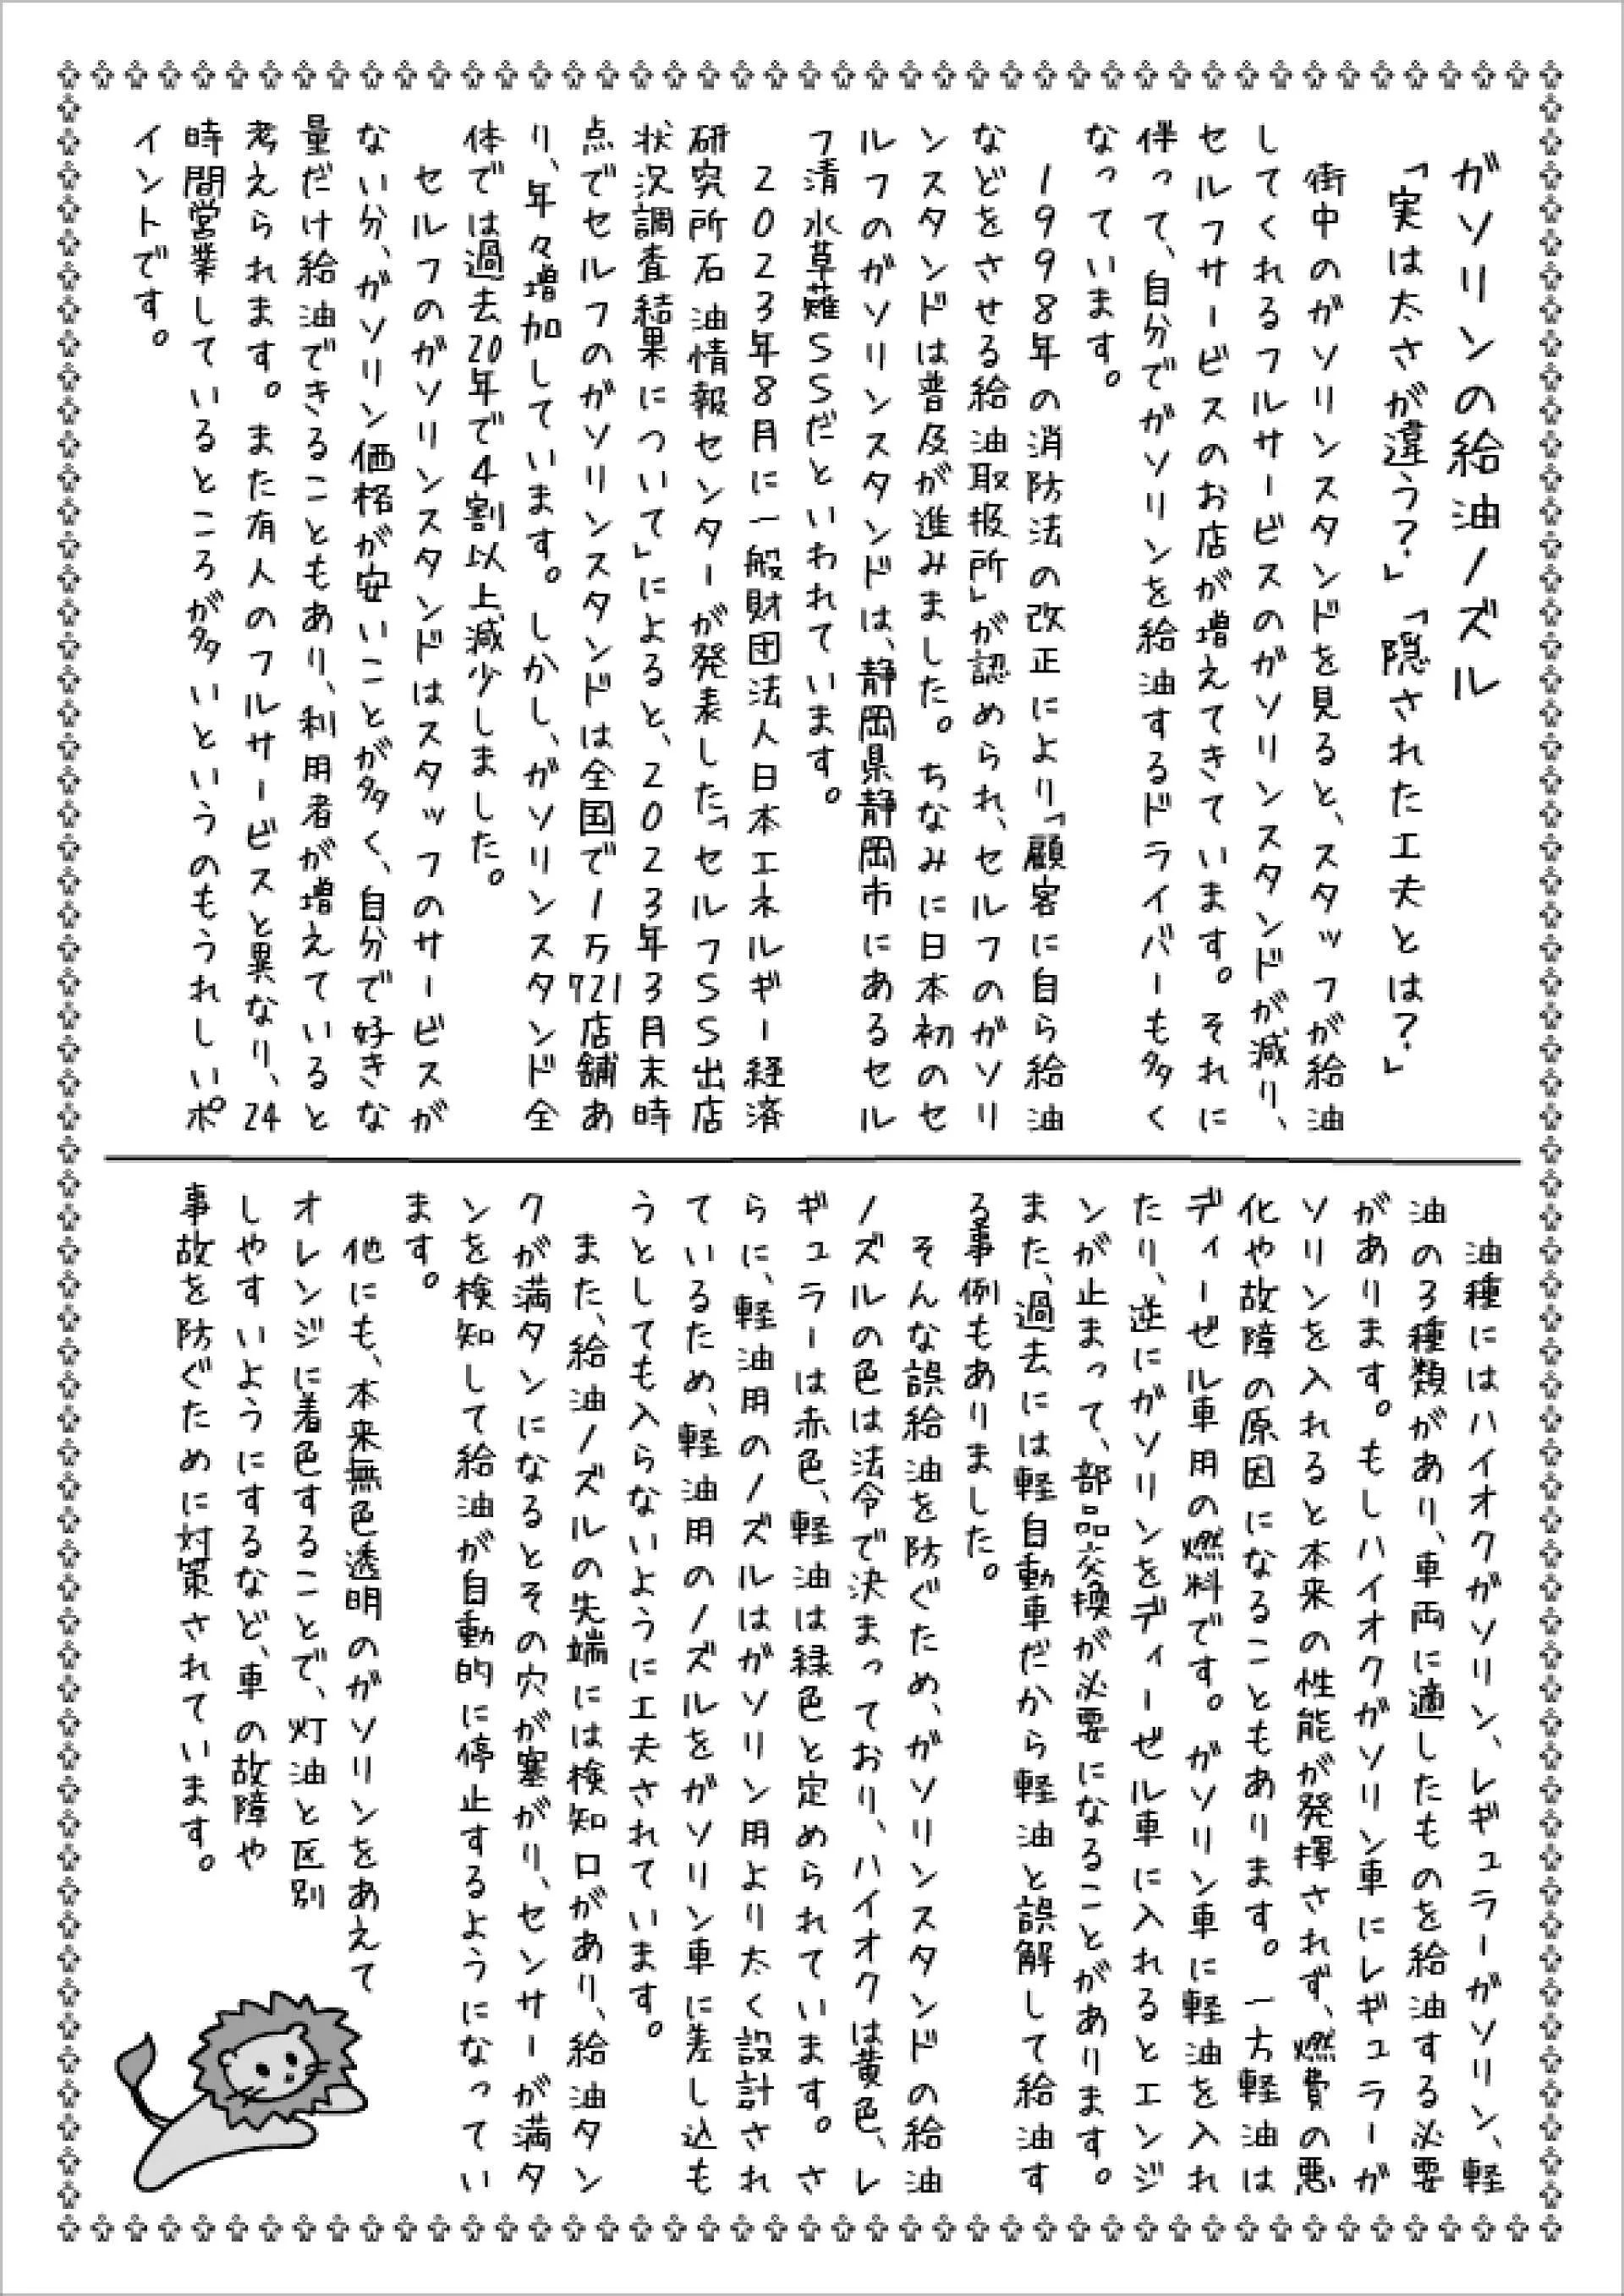 ガソリンの給油ノズル
「実は太さが違う?」「隠された工夫とは?」
街中のガソリンスタンドを見ると、スタッフが給油
してくれるフルサービスのガソリンスタンドが減り、
セルフサービスのお店が増えてきています。それに
伴って、自分でガソリンを給油するドライバーも多く
なっています。
1998年の消防法の改正により「顧客に自ら給油
などをさせる給油取扱所」が認められ、セルフのガソリ
ンスタンドは普及が進みました。ちなみに日本初のセ
ルフのガソリンスタンドは、静岡県静岡市にあるセル
フ清水草薙SSだといわれています。
2023年8月に一般財団法人日本エネルギー経済
研究所石油情報センターが発表した「セルフSS出店
状況調査結果について」によると、2023年3月末時
点でセルフのガソリンスタンドは全国で1万721店舗あ
り、年々増加しています。しかし、ガソリンスタンド全
体では過去20年で4割以上減少しました。
セルフのガソリンスタンドはスタッフのサービスが
ない分、ガソリン価格が安いことが多く、自分で好きな
量だけ給油できることもあり、利用者が増えていると
考えられます。また有人のフルサービスと異なり、24
時間営業しているところが多いというのもうれしいポ
イントです。
油種にはハイオクガソリン、レギュラーガソリン、軽
油の3種類があり、車両に適したものを給油する必要
があります。もしハイオクガソリン車にレギュラーガ
ソリンを入れると本来の性能が発揮されず、燃費の悪
化や故障の原因になることもあります。一方軽油は
ディーゼル車用の燃料です。ガソリン車に軽油を入れ
たり、逆にガソリンをディーゼル車に入れるとエンジ
ンが止まって、部品交換が必要になることがあります。
また、過去には軽自動車だから軽油と誤解して給油す
る事例もありました。
そんな誤給油を防ぐため、ガソリンスタンドの給油
ノズルの色は法令で決まっており、ハイオクは黄色、レ
ギュラーは赤色、軽油は緑色と定められています。さ
らに、軽油用のノズルはガソリン用より太く設計され
ているため、軽油用のノズルをガソリン車に差し込も
うとしても入らないように工夫されています。
また、給油ノズルの先端には検知口があり、給油タン
クが満タンになるとその穴が塞がり、センサーが満タ
ンを検知して給油が自動的に停止するようになってい
ます。
他にも、本来無色透明のガソリンをあえて
オレンジに着色することで、灯油と区別
しやすいようにするなど、車の故障や
事故を防ぐために対策されています。